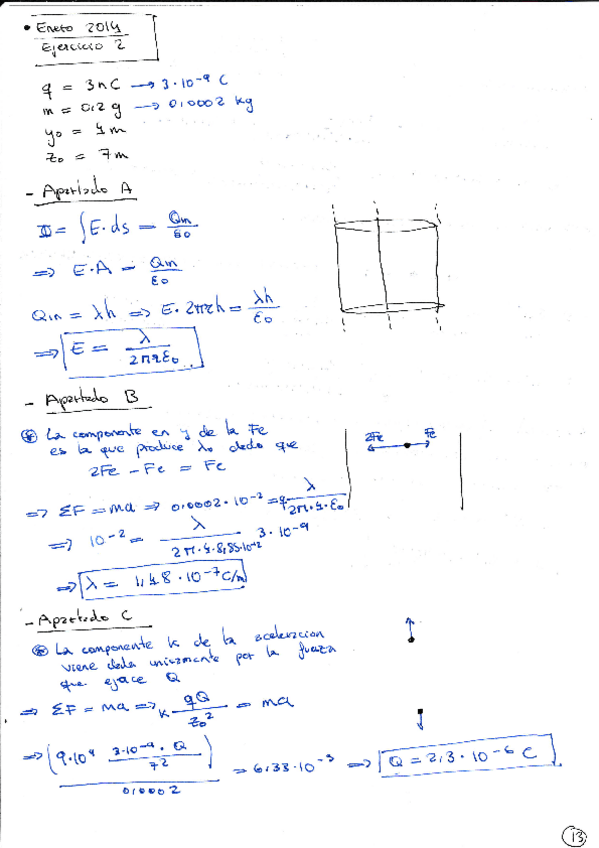 • Enero 2014
Ejercicio 2
q = 3nC → 3·10⁻⁹ C
m = 0,2 g → 0,0002 kg
y₀ = 4m
z₀ = 7m
- Apartado A
Φ = ∫E·ds = Qin/ε₀
⇒ E·A = Qin/ε₀
Qin = λh ⇒ E·2πrh = λh/ε₀
⇒ E = λ/2πrε₀
- Apartado B
La componente en y de la Fe
es la que produce λ₀ dado que
2Fe - Fe = Fe
2Fe Fe
⇒ ΣF = ma ⇒ 0,0002·10⁻² = q λ/2π·4·ε₀
⇒ 10⁻² = λ/2π·4·8,85·10⁻¹² 3·10⁻⁹
⇒ λ = 1,48·10⁻⁷ C/m
- Apartado C
La componente k de la aceleracion
viene dada unicamente por la fuerza
que ejerce Q
⇒ ΣF = ma ⇒ k qQ/z₀² = ma
⇒ (9·10⁹ 3·10⁻⁹·Q/7²)/0,0002 = 6,33·10⁻³ ⇒ Q = 2,3·10⁻⁶ C
13